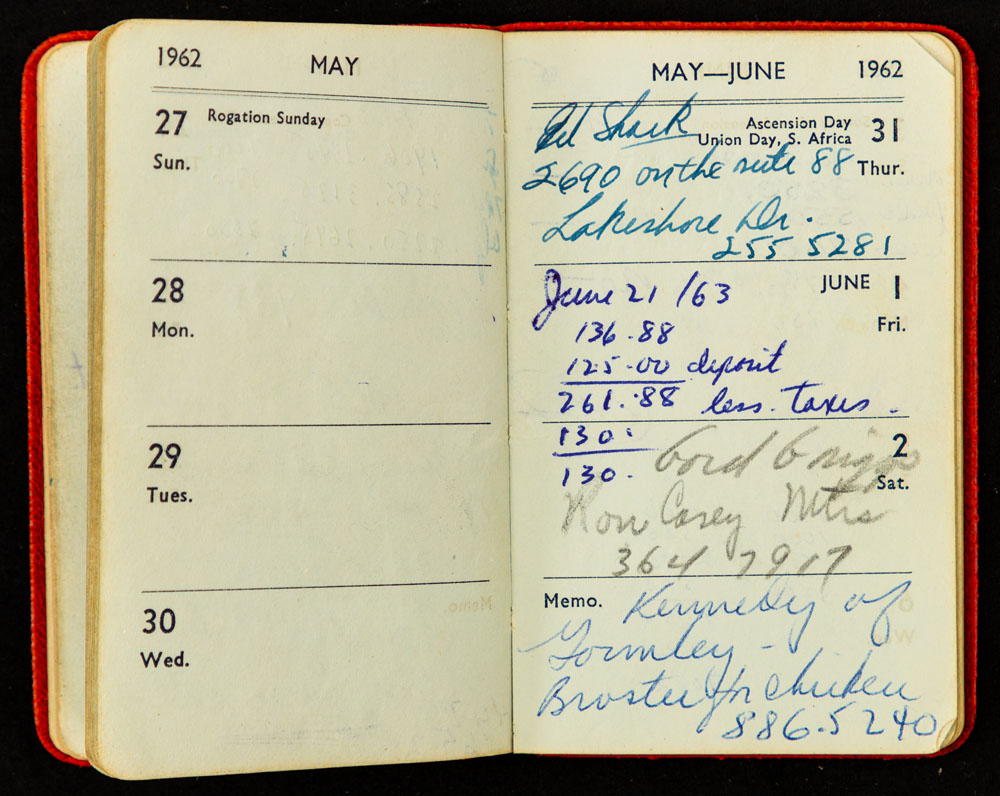 1962 MAY
27 Rogation Sunday
Sun.
28
Mon.
29
Tues.
30
Wed.
MAY—JUNE 1962
Shack
Ascension Day 31
Union Day, S. Africa
Thur.
2690 on the 88
Lakeshore Dr.
255 5281
JUNE 1
Fri.
June 21 /63
136.88
125.00 deposit
261.88 less taxes.
2
Sat.
130.
130.
Gord
Ron Casey Mtrs
364 7917
Memo. Kennedy of
Gormley -
Broster for chicken
886.5240